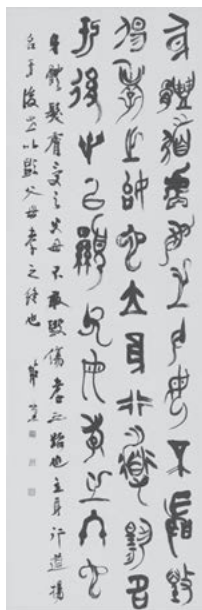 身體髮膚受之父母不敢毀
傷孝之始也立身行道揚名
于後世以顯父母孝之終也
身體髮膚受之父母不敢毀傷孝之始也立身行道揚
名于後世以顯父母孝之終也